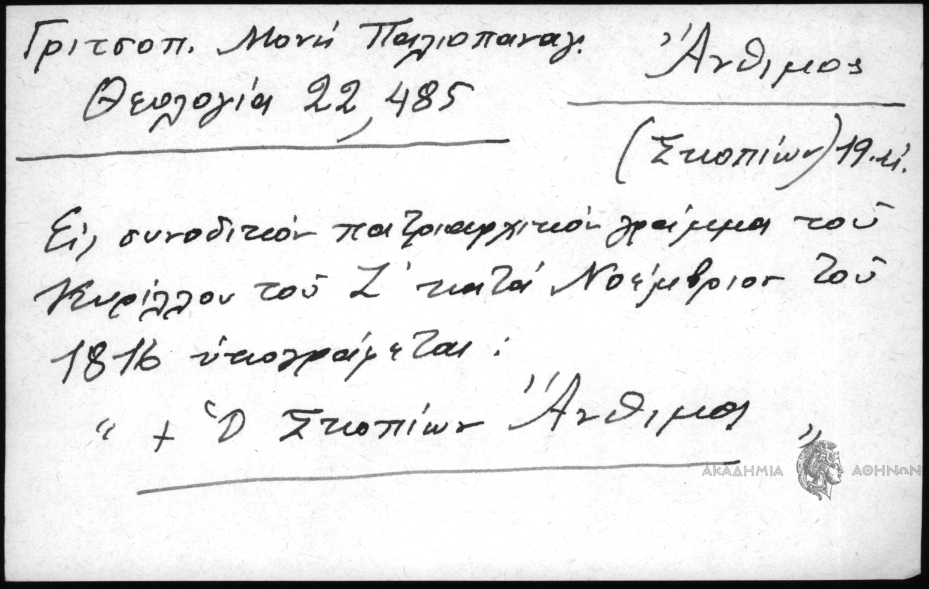 Γριτσοπ. Μονή Παλιοπαναγ.
Θεολογία 22, 485
Ἄνθιμος
(Σκοπίων) 19.αἰ.
Εἰς συνοδικόν πατριαρχικόν γράμμα τοῦ
Κυρίλλου τοῦ Ζ΄ κατά Νοέμβριον τοῦ
1816 ὑπογράφεται:
" + Ὁ Σκοπίων Ἄνθιμος "
ΑΚΑΔΗΜΙΑ ΑΘΗΝΩΝ